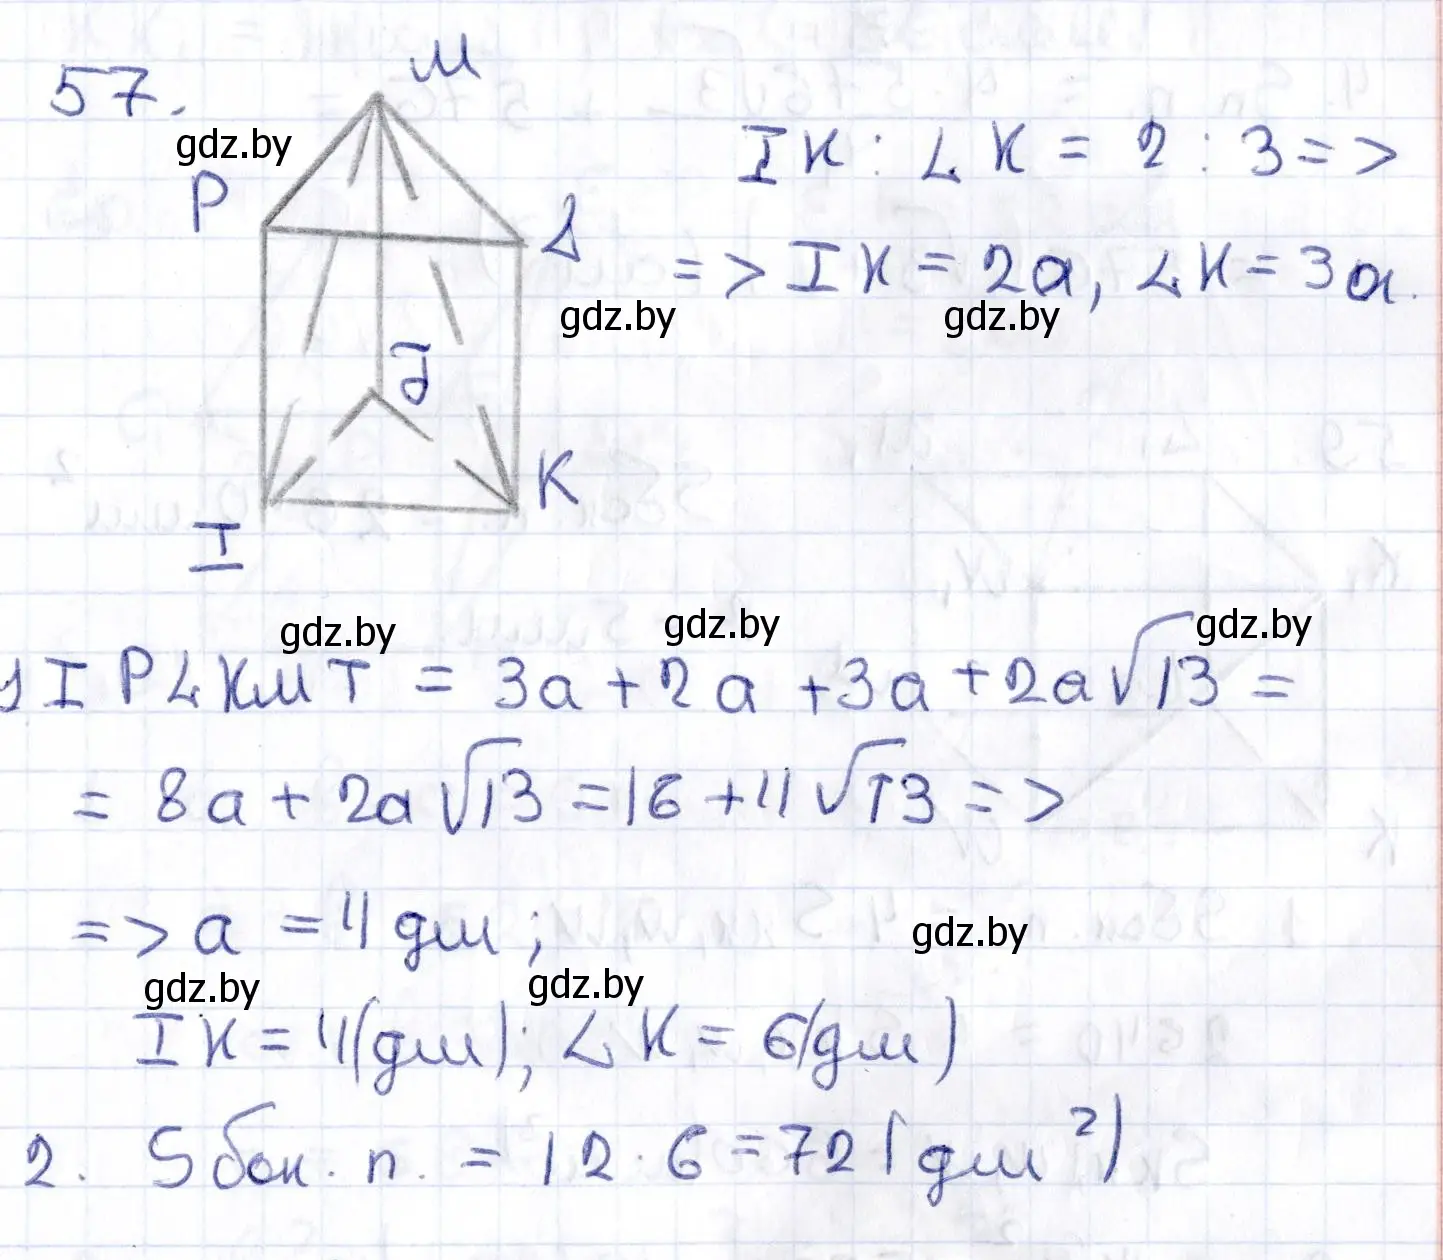 57.
M
gdz.by
P
L
I K : L K = 2 : 3 = >
= > I K = 2a, L K = 3a.
gdz.by
gdz.by
T
K
I
gdz.by
gdz.by
gdz.by
1) I P L K M T = 3a + 2a + 3a + 2a √13 =
= 8a + 2a √13 = 16 + 4 √13 = >
= > a = 4 дм ;
gdz.by
gdz.by
gdz.by
I K = 4(дм); L K = 6(дм)
2. S бок. п. = 12 · 6 = 72 (дм²)